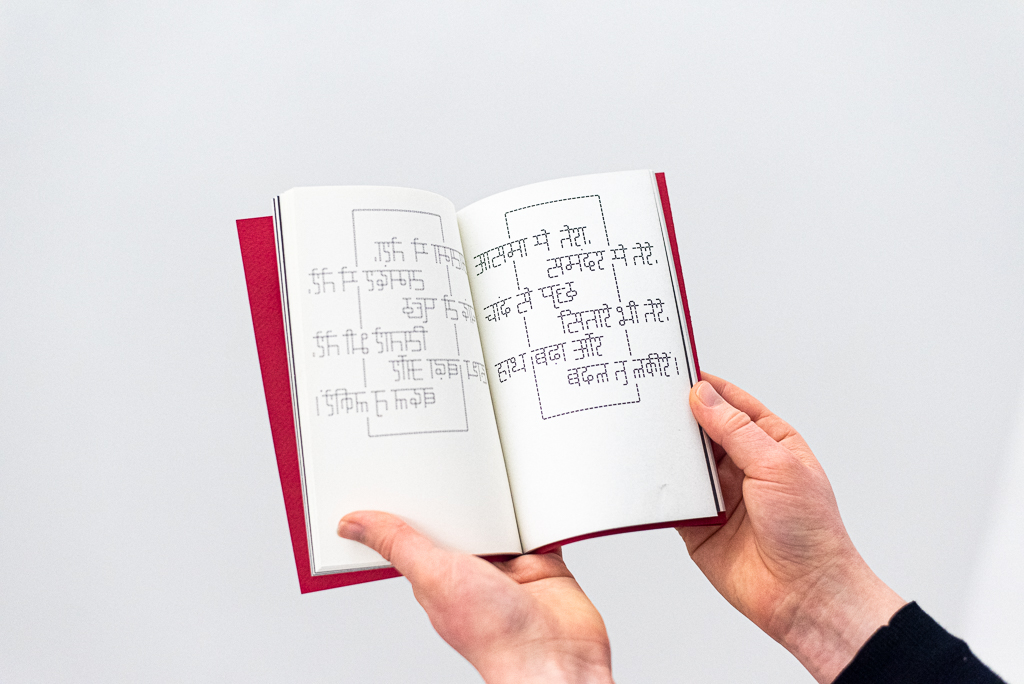 आसमा ये तेरा,
समंदर ये तेरे,
चांद से पूछ
सितारे भी तेरे,
हाथ बढ़ा और
बदल तू लकीरें।